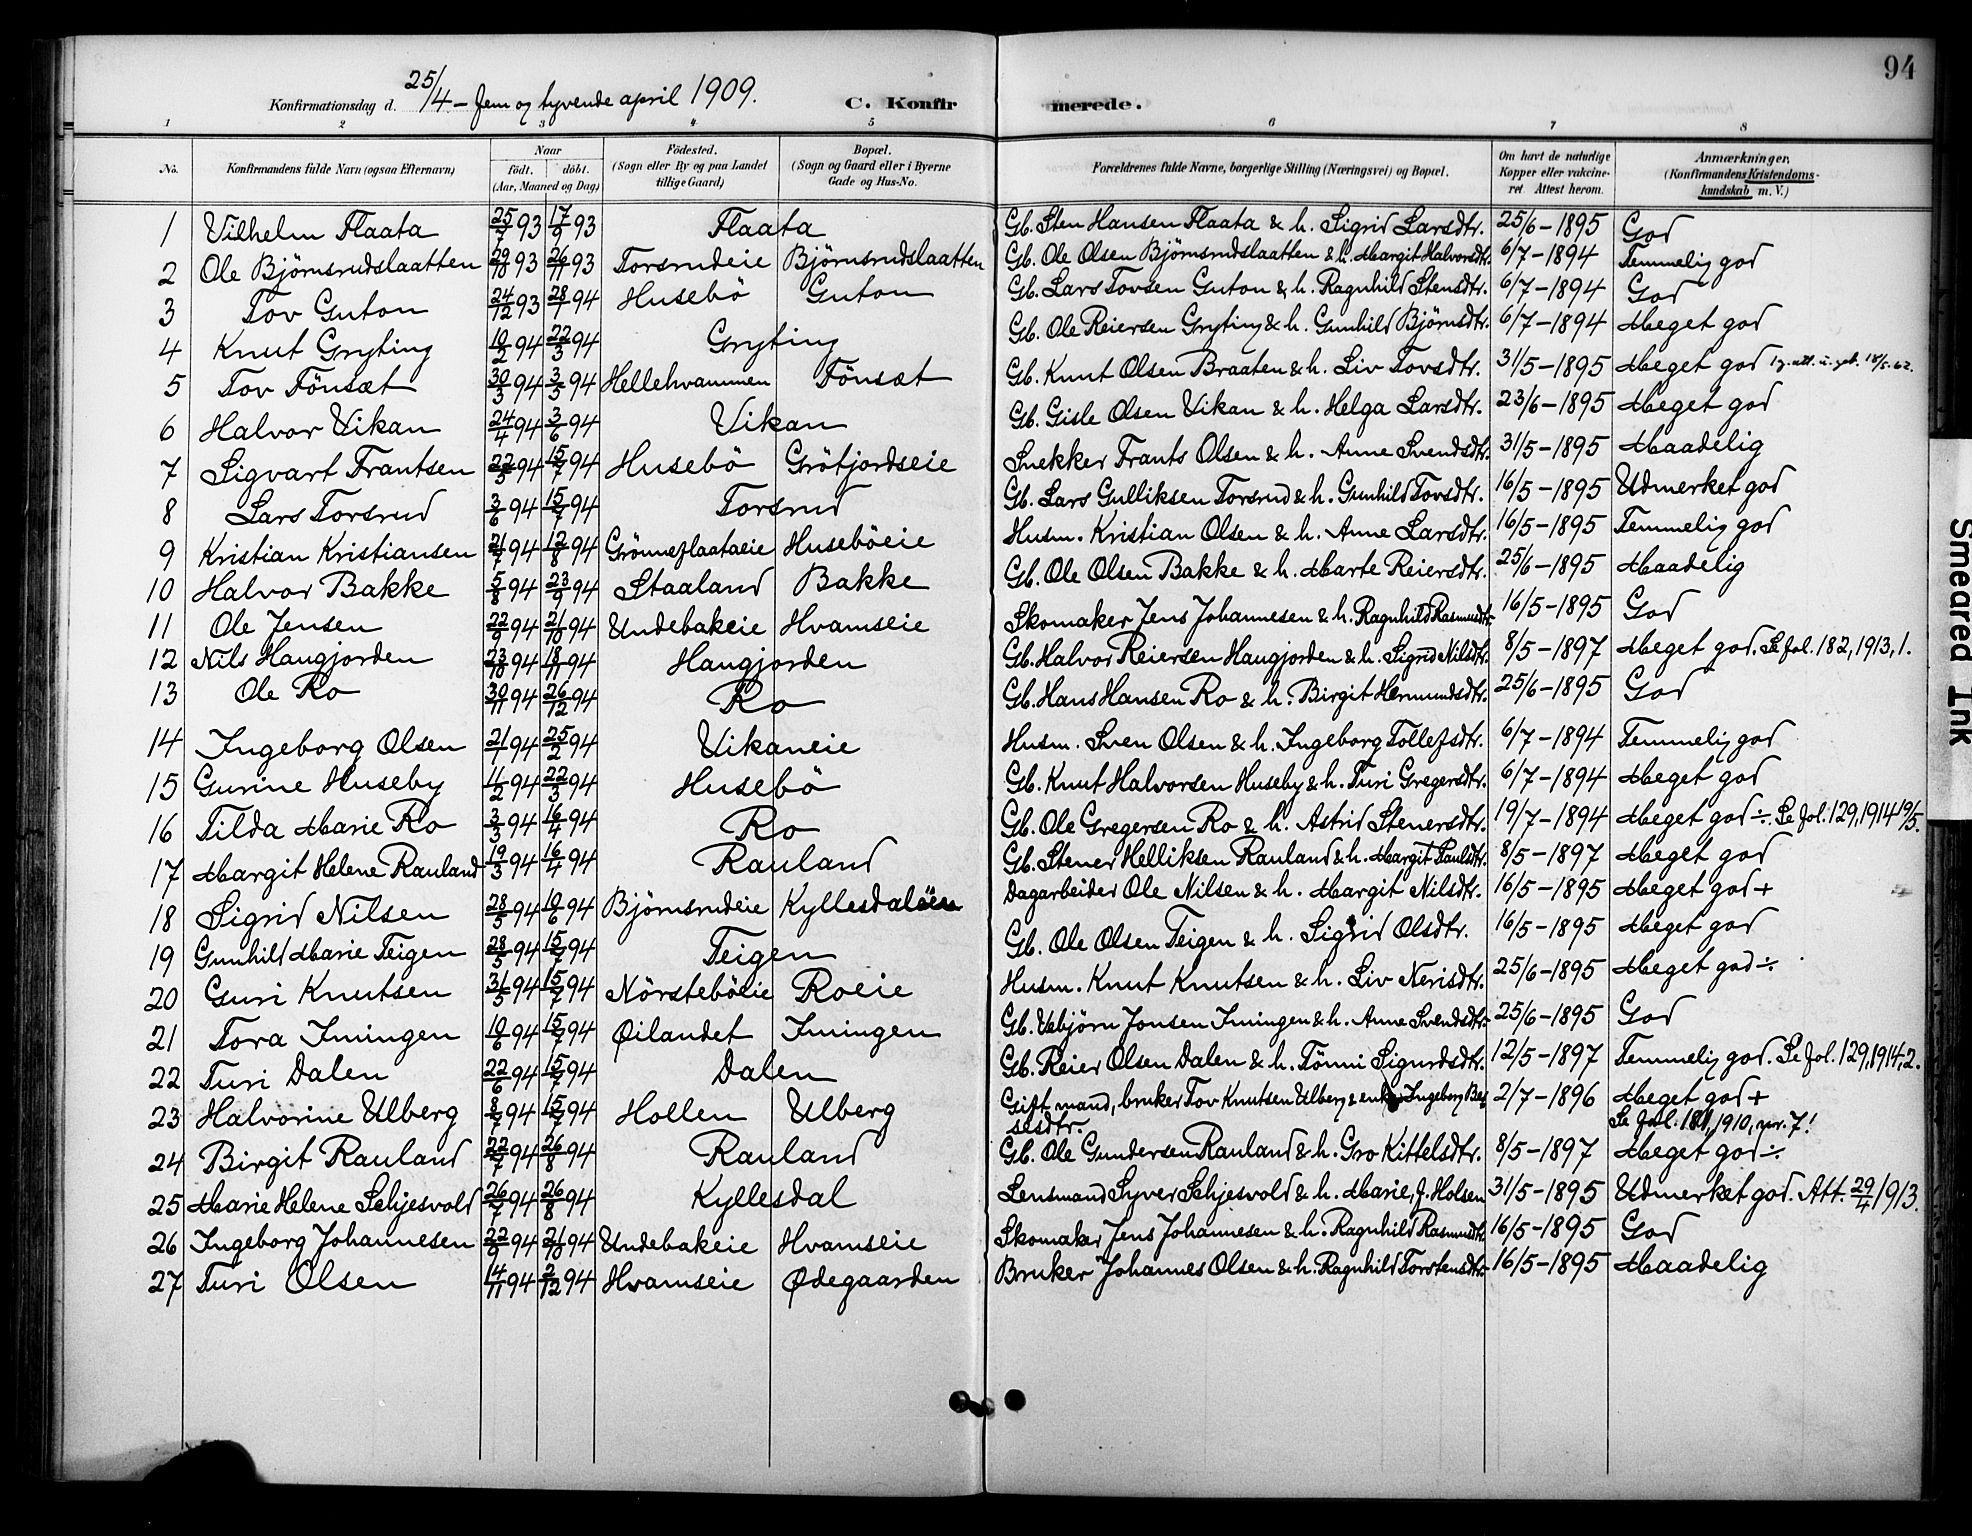 94
Konfirmationsdag d. 25/4 - fem og tyvende april 1909. C. Konfirmerede.
1 2 3 4 5 6 7 8
No. Konfirmandens fulde Navn (ogsaa Efternavn) Naar født. døbt. (Aar, Maaned og Dag) Fødested. (Sogn eller By og paa Landet tillige Gaard) Bopæl. (Sogn og Gaard eller i Byerne Gade og Hus-No. Forældrenes fulde Navne, borgerlige Stilling (Næringsvei) og Bopæl. Om havt de naturlige Kopper eller vakcineret Attest herom. Anmærkninger. (Konfirmandens Kristendomskundskab m. V.)
1 Vilhelm Flaata 25/7 93 17/9 93 Flaata Gb. Sten Hansen Flaata & h. Sigrid Larsdtr. 25/6-1895 God
2 Ole Björnsrudslaatten 29/10 93 26/11 93 Torsrudeie Björnsrudslaatten Gb. Ole Olsen Björnsrudslaatten & h. Margit Halvorsdtr. 6/7-1894 Temmelig god
3 Tov Guton 24/12 93 28/1 94 Husebö Guton Gb. Lars Tovsen Guton & h. Ragnhild Stensdtr. 6/7-1894 God
4 Knut Gryting 10/2 94 22/3 94 Gryting Gb. Ole Reiersen Gryting & h. Gunhild Björnsdtr. 6/7-1894 Meget god
5 Tov Fönsæt 30/3 94 3/5 94 Hellehvammen Fönsæt Gb. Knut Olsen Braaten & h. Liv Tovsdtr. 31/5-1895 Meget god
6 Halvor Vikan 24/4 94 3/6 94 Vikan Gb. Gisle Olsen Vikan & h. Helga Larsdtr. 23/6-1895 Meget god
7 Sigvart Frantsen 22/5 94 15/7 94 Husebö Grötjordseie Snekker Frants Olsen & h. Anne Svendsdtr. 31/5-1895 Maadelig
8 Lars Torsrud 3/6 94 15/7 94 Torsrud Gb. Lars Gulliksen Torsrud & h. Gunhild Tovsdtr. 16/5-1895 Udmerket god
9 Kristian Kristiansen 21/7 94 12/8 94 Grönneflaataeie Huseböeie Husm. Kristian Olsen & h. Anne Larsdtr. 16/5-1895 Temmelig god
10 Halvor Bakke 5/8 94 23/9 94 Staaland Bakke Gb. Ole Olsen Bakke & h. Marte Reiersdtr. 25/6-1895 Maadelig
11 Ole Jensen 22/9 94 21/10 94 Undebakeie Hvamseie Skomaker Jens Johannesen & h. Ragnhild Rasmusdtr. 16/5-1895 God
12 Nils Haugjorden 23/10 94 18/11 94 Haugjorden Gb. Halvor Reiersen Haugjorden & h. Sigrid Nilsdtr. 8/5-1897 Meget god. Se fol. 182, 1913, 1.
13 Ole Ro 30/11 94 26/12 94 Ro Gb. Hans Hansen Ro & h. Birgit Hermundsdtr. 25/6-1895 God
14 Ingeborg Olsen 21/1 94 25/2 94 Vikaneie Husm. Sven Olsen & h. Ingeborg Tollefsdtr. 6/7-1894 Temmelig god
15 Gurine Huseby 11/2 94 22/3 94 Husebö Gb. Knut Halvorsen Huseby & h. Turi Gregersdtr. 6/7-1894 Meget god
16 Tilda Marie Ro 3/3 94 16/4 94 Ro Gb. Ole Gregersen Ro & h. Astrid Stenersdtr. 19/7-1894 Meget god ÷. Se fol. 129, 1914 19/5.
17 Margit Helene Rauland 19/3 94 16/4 94 Rauland Gb. Stener Helliksen Rauland & h. Margit Paulsdtr. 8/5-1897 Meget god
18 Sigrid Nilsen 28/5 94 10/6 94 Björnsrudeie Kyllesdaleie Dagarbeider Ole Nilsen & h. Margit Nilsdtr. 16/5-1895 Meget god +
19 Gunhild Marie Teigen 28/5 94 15/7 94 Teigen Gb. Ole Olsen Teigen & h. Sigrid Olsdtr. 16/5-1895 Meget god
20 Guri Knutsen 31/5 94 15/7 94 Nörsteböeie Roeie Husm. Knut Knutsen & h. Liv Nerisdtr. 25/6-1895 Meget god ÷.
21 Tora Imingen 10/6 94 15/7 94 Øilandet Imingen Gb. Vebjörn Jonsen Imingen & h. Anne Svendsdtr. 25/6-1895 God
22 Turi Dalen 22/6 94 15/7 94 Dalen Gb. Reier Olsen Dalen & h. Tönni Sigurdsdtr. 12/5-1897 Temmelig god. Se fol. 129, 1914, 2.
23 Halvorine Ulberg 8/7 94 15/7 94 Hollen Ulberg Gift mand, bruker Tov Knutsen Ulberg & enke Ingeborg Bes 2/7-1896 Meget god +
sesdtr. Se fol. 181, 1910, nr. 7!
24 Birgit Rauland 22/7 94 26/8 94 Rauland Gb. Ole Gundersen Rauland & h. Gro Kittelsdtr. 8/5-1897 Meget god ÷
25 Marie Helene Schjesvold 26/7 94 26/8 94 Kyllesdal Lensmand Syver Schjesvold & h. Marie, f. Holsen 31/5-1895 Udmerket god. Att. 29/4 1913.
26 Ingeborg Johannesen 22/9 94 21/10 94 Undebakeie Hvamseie Skomaker Jens Johannesen & h. Ragnhild Rasmusdtr. 16/5-1895 God
27 Turi Olsen 14/11 94 2/12 94 Hvamseie Ødegaarden Bruker Johannes Olsen & h. Ragnhild Torstensdtr. 16/5-1895 Maadelig
Smeared Ink